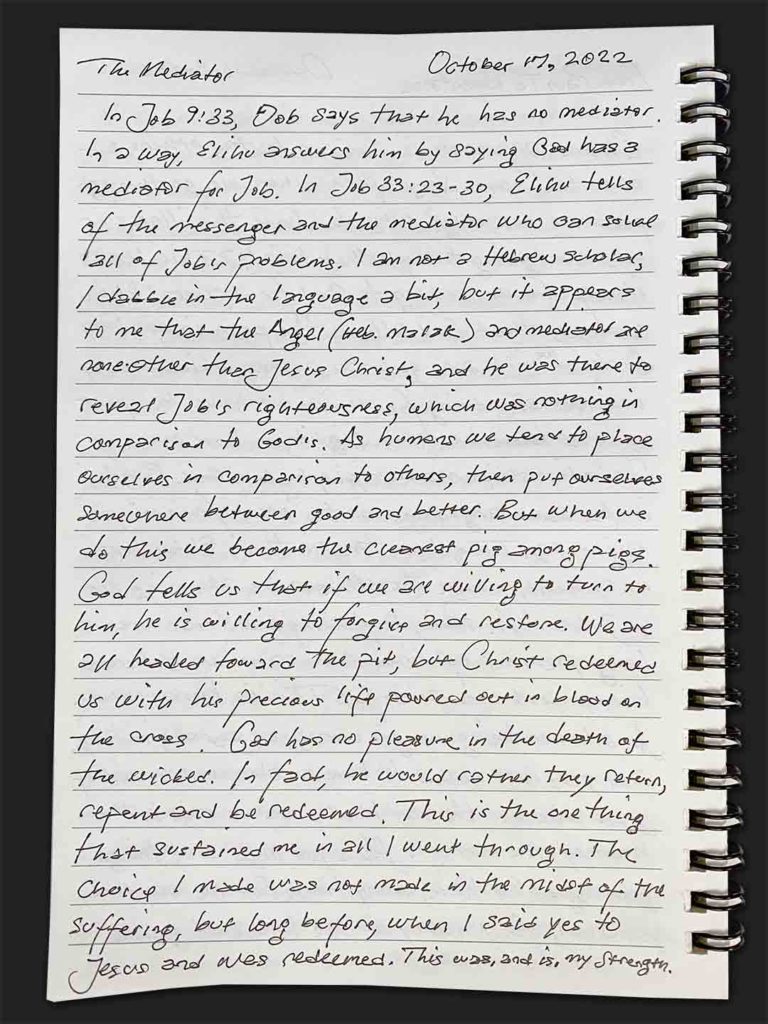 The Mediator October 17, 2022
In Job 9:33, Job says that he has no mediator.
In a way, Elihu answers him by saying God has a
mediator for Job. In Job 33:23-30, Elihu tells
of the messenger and the mediator who can solve
all of Job's problems. I am not a Hebrew scholar,
I dabble in the language a bit, but it appears
to me that the Angel (Heb. malak) and mediator are
none other than Jesus Christ, and he was there to
reveal Job's righteousness, which was nothing in
comparison to God's. As humans we tend to place
ourselves in comparison to others, then put ourselves
somewhere between good and better. But when we
do this we become the cleanest pig among pigs.
God tells us that if we are willing to turn to
him, he is willing to forgive and restore. We are
all headed toward the pit, but Christ redeemed
us with his precious life poured out in blood on
the cross. God has no pleasure in the death of
the wicked. In fact, he would rather they return,
repent and be redeemed. This is the one thing
that sustained me in all I went through. The
choice I made was not made in the midst of the
suffering, but long before, when I said yes to
Jesus and was redeemed. This was, and is, my strength.